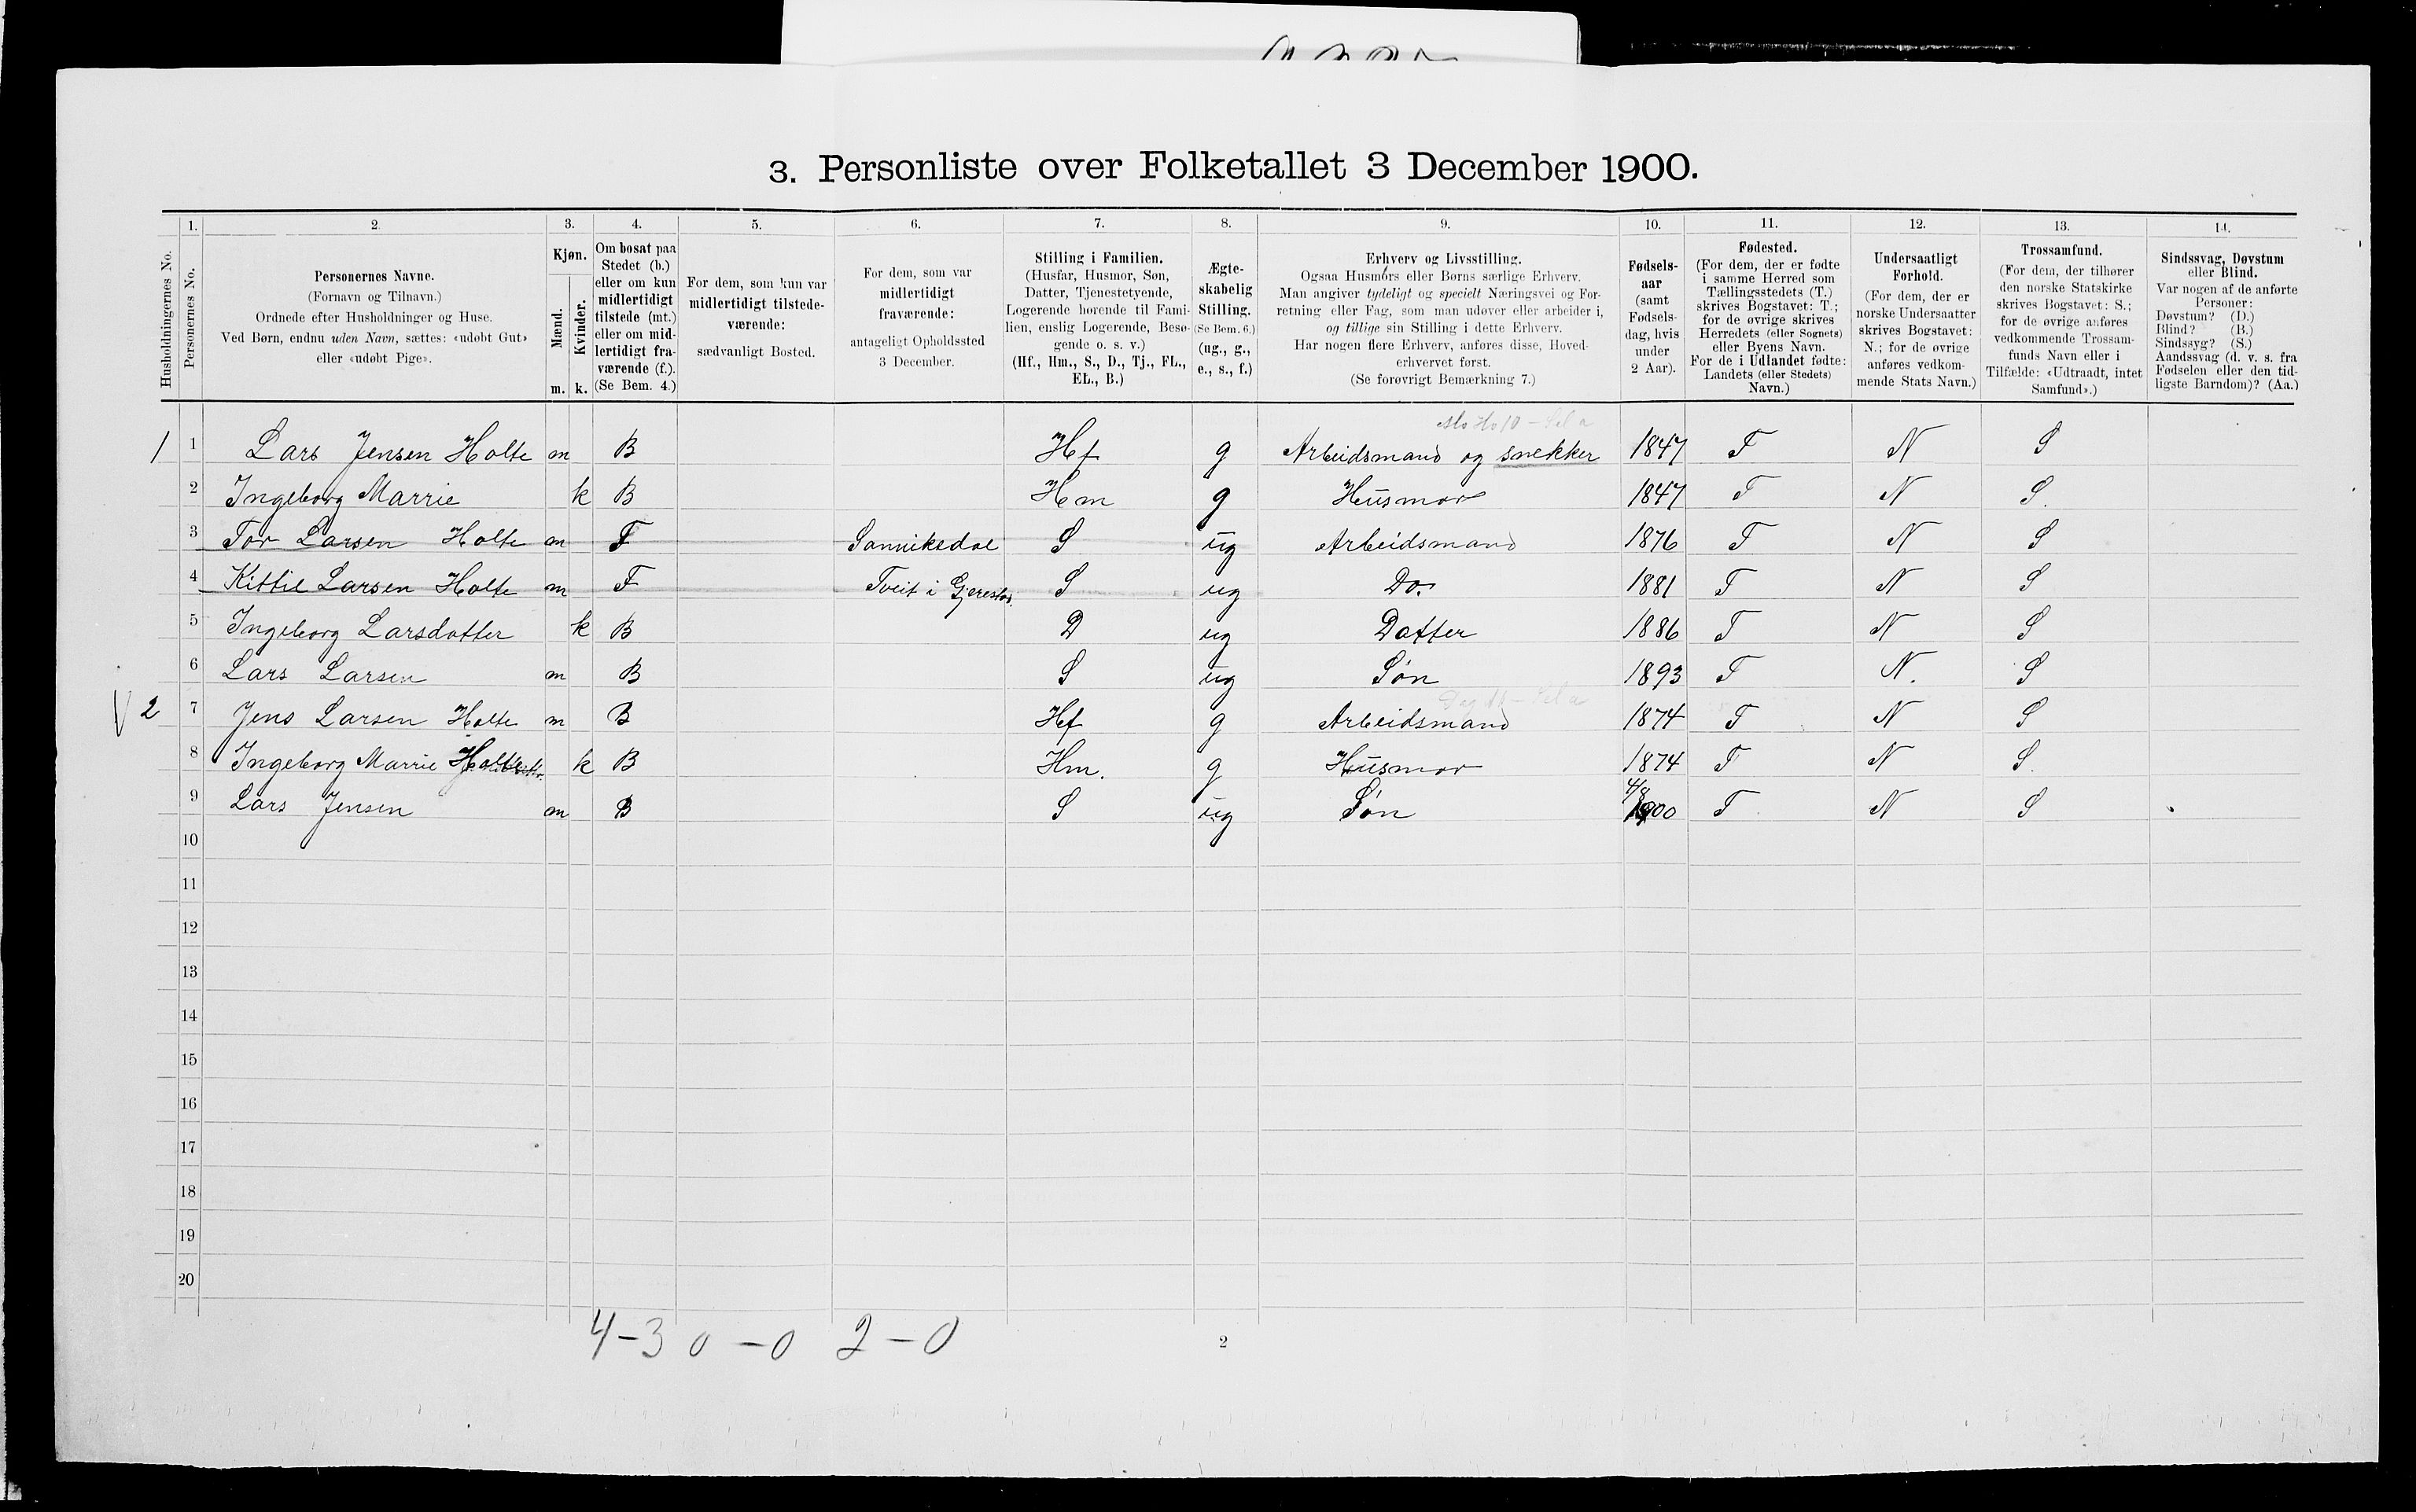 3. Personliste over Folketallet 3 December 1900.
Husholdningernes No.
1. Personernes No.
2. Personernes Navne.
(Fornavn og Tilnavn.)
Ordnede efter Husholdninger og Huse.
Ved Børn, endnu uden Navn, sættes: «udøbt Gut»
eller «udøbt Pige».
3. Kjøn.
Mænd. m.
Kvinder. k.
4. Om bosat paa
Stedet (b.)
eller om kun
midlertidigt
tilstede (mt.)
eller om mid-
lertidigt fra-
værende (f.).
(Se Bem. 4.)
5. For dem, som kun var
midlertidigt tilstede-
værende:
sædvanligt Bosted.
6. For dem, som var
midlertidigt
fraværende:
antageligt Opholdssted
3 December.
7. Stilling i Familien.
(Husfar, Husmor, Søn,
Datter, Tjenestetyende,
Logerende hørende til Fami-
lien, enslig Logerende, Besø-
gende o. s. v.)
(Hf., Hm., S., D., Tj., FL.,
EL., B.)
8. Ægte-
skabelig
Stilling.
(Se Bem. 6.)
(ug., g.,
e., s., f.)
9. Erhverv og Livsstilling.
Ogsaa Husmors eller Børns særlige Erhverv.
Man angiver tydeligt og specielt Næringsvei og For-
retning eller Fag, som man udøver eller arbeider i,
og tillige sin Stilling i dette Erhverv.
Har nogen flere Erhverv, anføres disse, Hoved-
erhvervet først.
(Se forøvrigt Bemærkning 7.)
10. Fødsels-
aar
(samt
Fødsels-
dag, hvis
under
2 Aar).
11. Fødested.
(For dem, der er fødte
i samme Herred som
Tællingsstedets (T.)
skrives Bogstavet: T.;
for de øvrige skrives
Herredets (eller Sognets)
eller Byens Navn.
For de i Udlandet fødte:
Landets (eller Stedets)
Navn.)
12. Undersaatligt
Forhold.
(For dem, der er
norske Undersaatter
skrives Bogstavet:
N.; for de øvrige
anføres vedkom-
mende Stats Navn.)
13. Trossamfund.
(For dem, der tilhører
den norske Statskirke
skrives Bogstavet: S.;
for de øvrige anføres
vedkommende Trossam-
funds Navn eller i
Tilfælde: «Udtraadt, intet
Samfund».)
14. Sindssvag, Døvstum
eller Blind.
Var nogen af de anførte
Personer:
Døvstum? (D.)
Blind? (B.)
Sindssyg? (S.)
Aandssvag (d. v. s. fra
Fødselen eller den tid-
ligste Barndom)? (Aa.)
1 1 Lars Jensen Holte m B Hf g Arbeidsmand og snekker 1847 T N S
2 Ingeborg Marrie k B Hm g Husmor 1847 T N S.
3 Tor Larsen Holte m F Sannikedal S ug Arbeidsmand 1876 T N S
4 Kittil Larsen Holte m F Tveit i Gjerestad. S ug Do. 1881 T N S
5 Ingeborg Larsdotter k B D ug Datter 1886 T N S
6 Lars Larsen m B S ug Søn 1893 T N. S
2 7 Jens Larsen Holte m B Hf g Arbeidsmand 1874 T N S
8 Ingeborg Marrie Holte k B Hm. g Husmor 1874 T N S.
9 Lars Jensen m B S ug Søn 4/8 1900 T N S
10
11
12
13
14
15
16
17
18
19
20
4-3 0-0 2-0
2